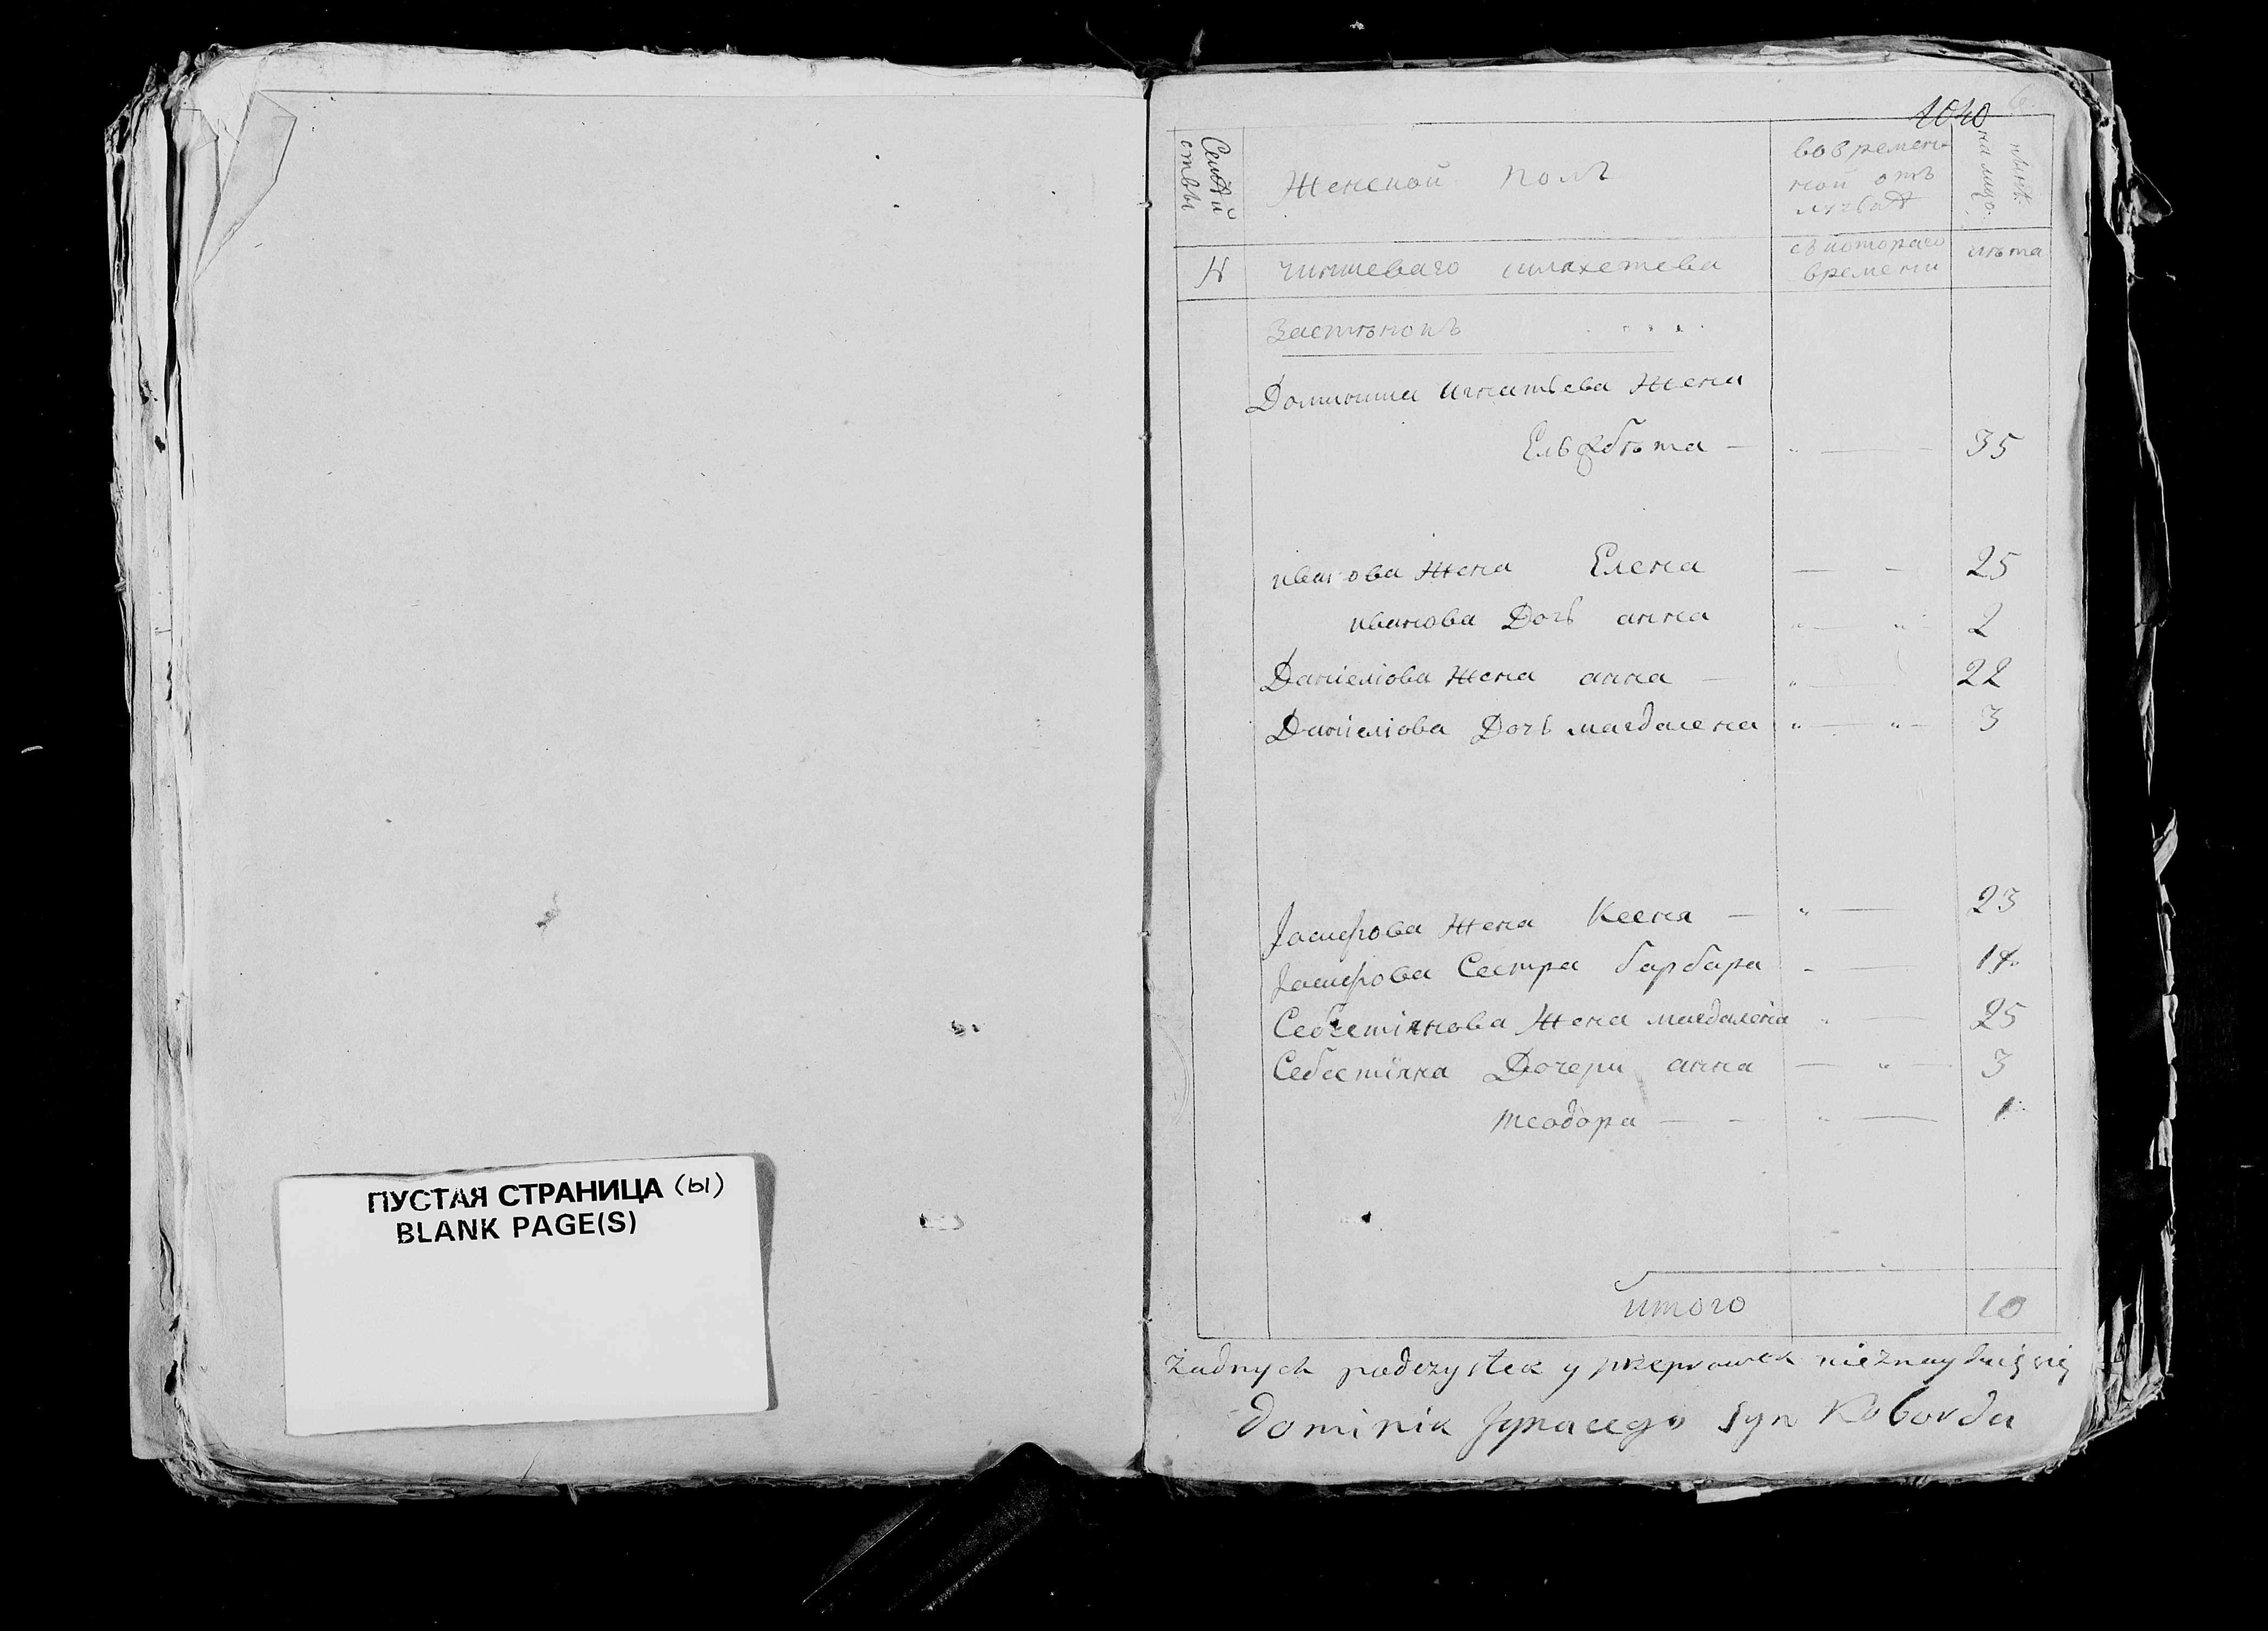 ПУСТАЯ СТРАНИЦА (ы)
BLANK PAGE(S)
1040
6
Семей
ствы
Женской полъ
во времен
ной отъ
лучкѣ
нынѣ
на лицо
№
чиншеваго шляхетства
съ котораго
времени
лѣта
Застѣнокъ
Доминика Игнатьева Жена
Ельжбѣта — 35
иванова Жена Елена — — 25
иванова Дочь анна 2
Даніелова Жена анна — 22
Даніелова Дочь магдалена 3
Жена Ксеня — 23
Сестра барбара 14
Себестіянова Жена магдалена 25
Себестіяна Дочери анна — 3
теодора — — 1
итого 10
żadnych podczystek y przeprawek nieznayduię się
Dominik Jgnacego Syn Roborda